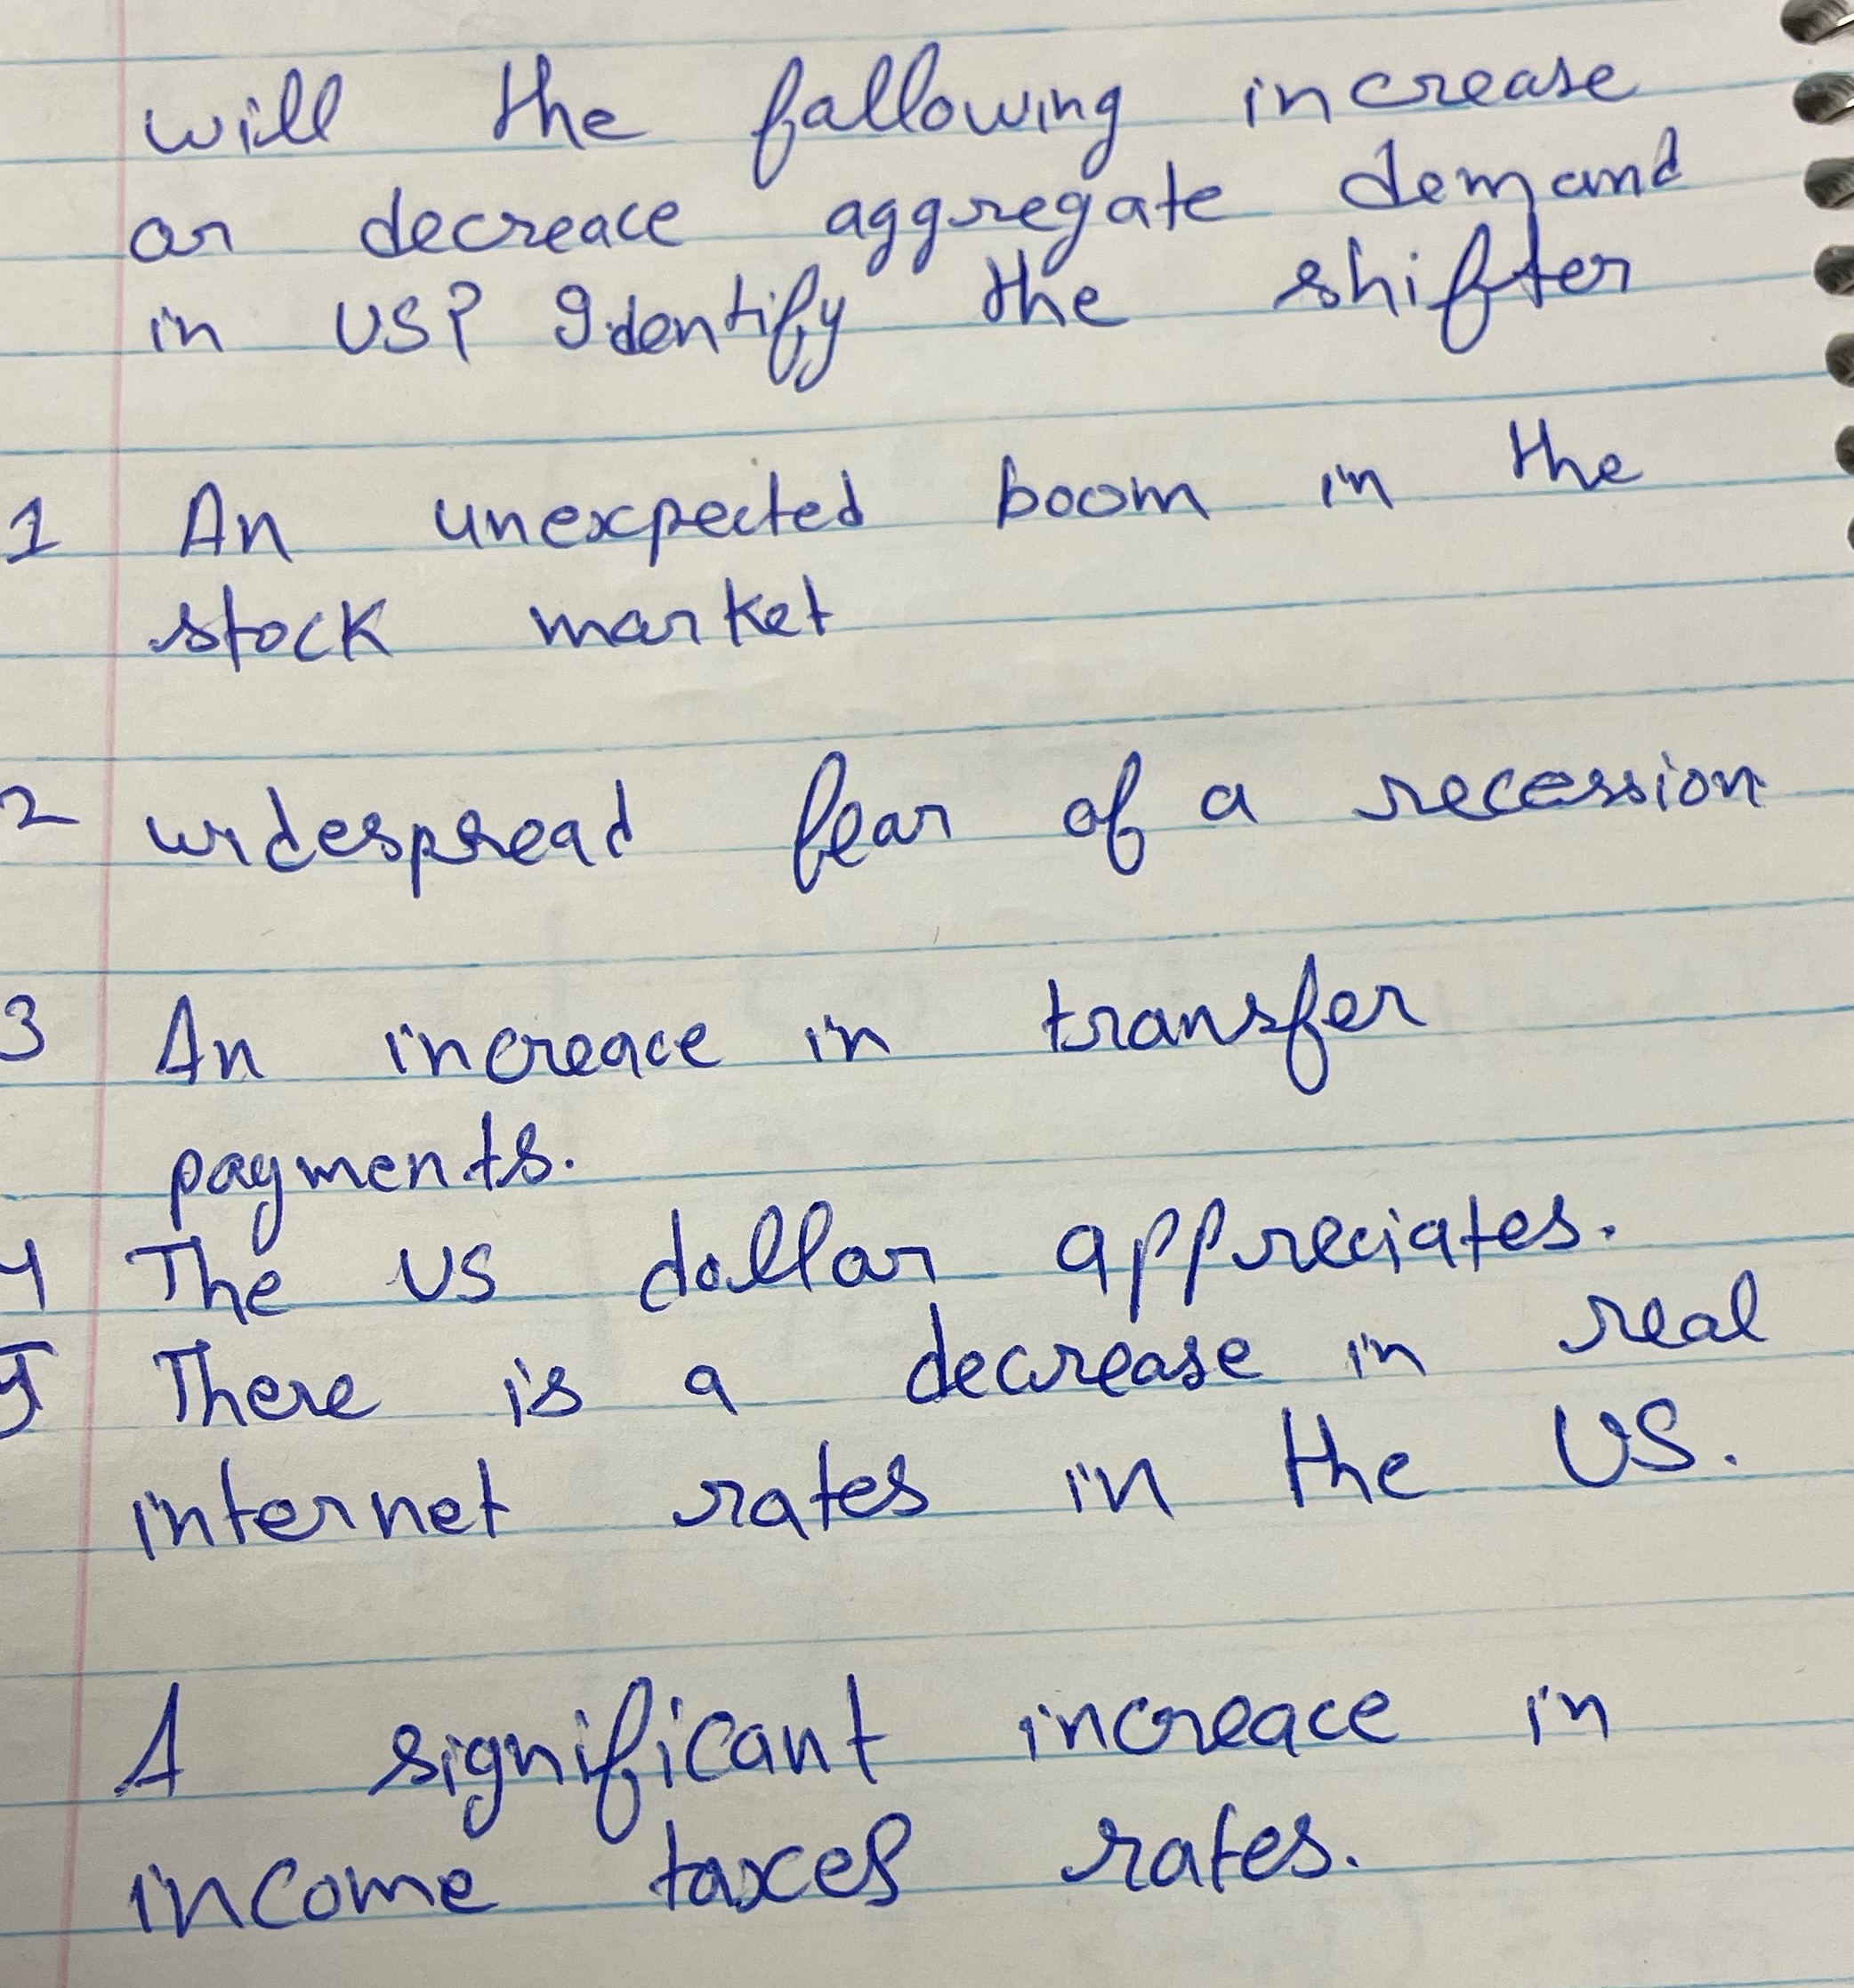 will the fallowing increase
or decreace aggregate demand
in US? Identify the shifter
1 An unexpected boom in the
stock market
2 widespread fear of a recession
3 An increace in transfer
payments.
4 The US dollar appreciates.
5 There is a decrease in real
internet rates in the US.
A significant increace in
income taxes rates.